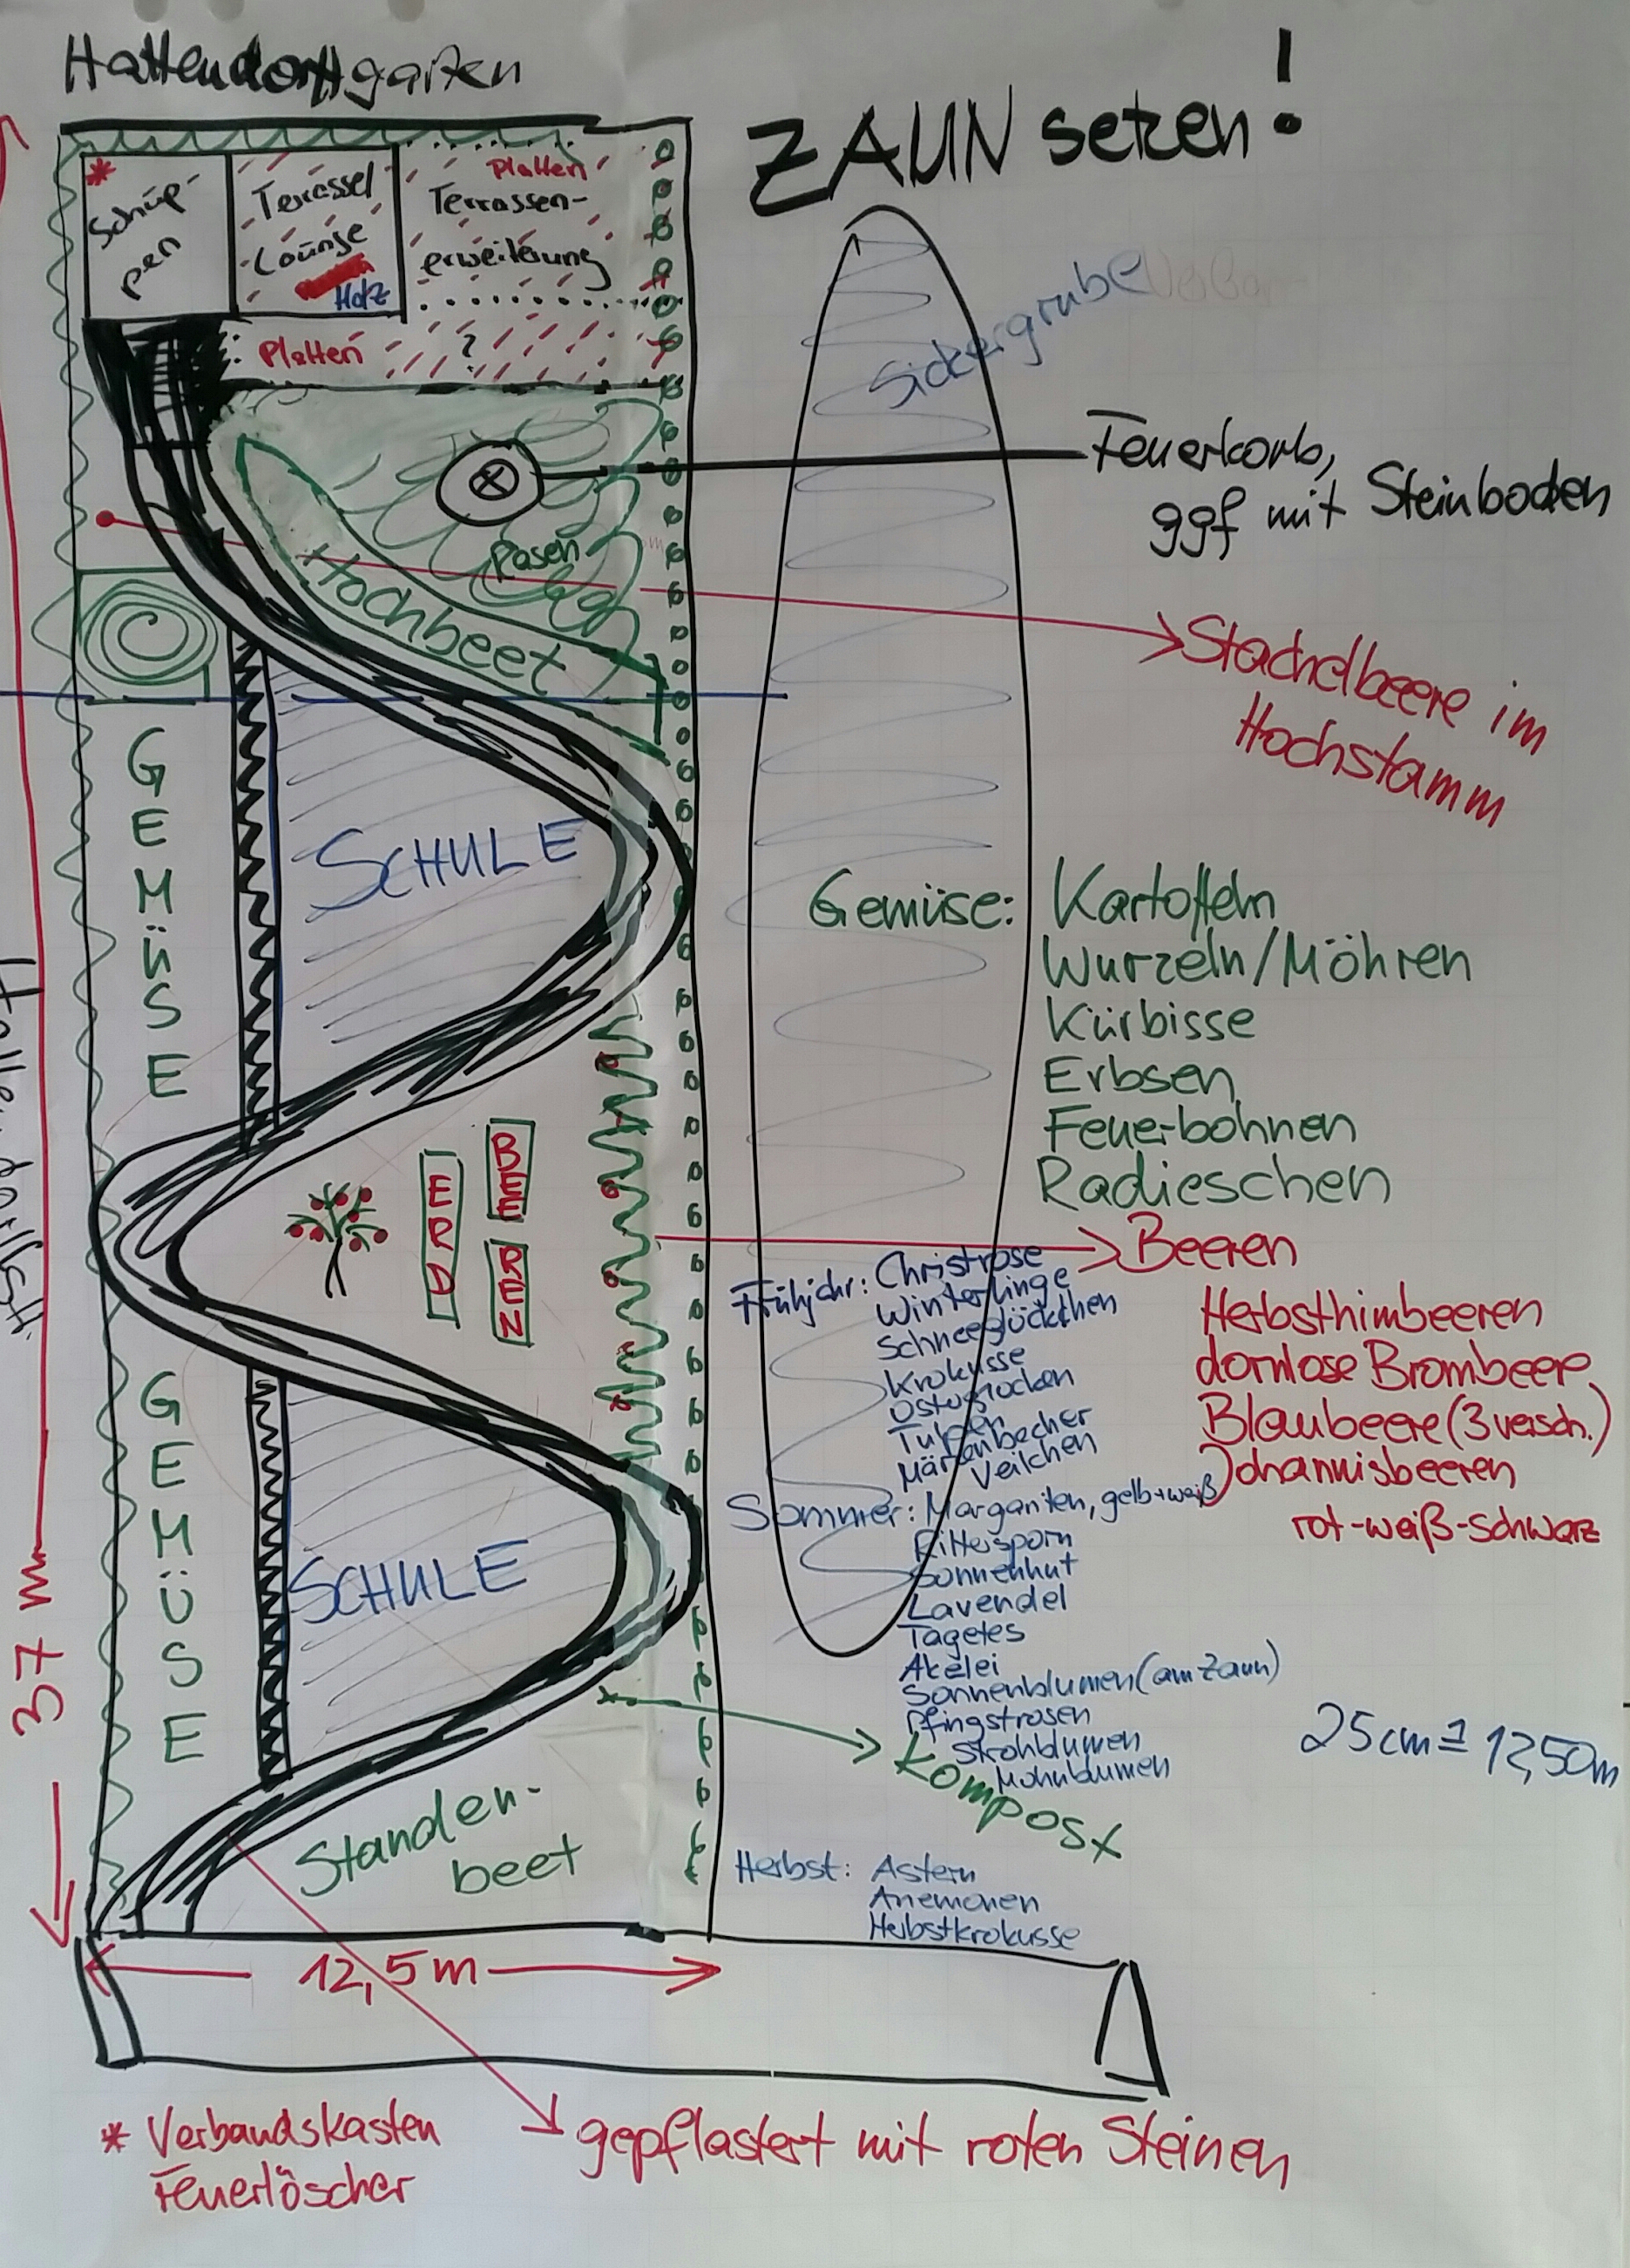 Hattendorffgarten
ZAUN setzen!
*
Schup-
pen
Terasse/
Lounge
Holz
Platten
Terrassen-
erweiterung
Platten
?
Sickergrube
Feuerkorb,
ggf mit Steinboden
Rasen
Hochbeet
Stachelbeere im
Hochstamm
GEMÜSE
SCHULE
Gemüse: Kartoffeln
Wurzeln/Möhren
Kürbisse
Erbsen
Feuerbohnen
Radieschen
ERD
BEE
REN
Beeren
Herbsthimbeeren
dornlose Brombeere
Blaubeere (3 versch.)
Johannisbeeren
rot-weiß-schwarz
Frühjahr: Christrose
Winterlinge
Schneeglöckchen
Krokusse
Osterglocken
Tulpen
Märzenbecher
Veilchen
Sommer: Margariten, gelb+weiß
Rittersporn
Sonnenhut
Lavendel
Tagetes
Akelei
Sonnenblumen (am Zaun)
Pfingstrosen
Strohblumen
Mohnblumen
GEMÜSE
SCHULE
37 m
25cm ≙ 12,50m
Kompost
Standen-
beet
Herbst: Astern
Anemonen
Herbstkrokusse
12,5m
* Verbandskasten
Feuerlöscher
gepflastert mit roten Steinen